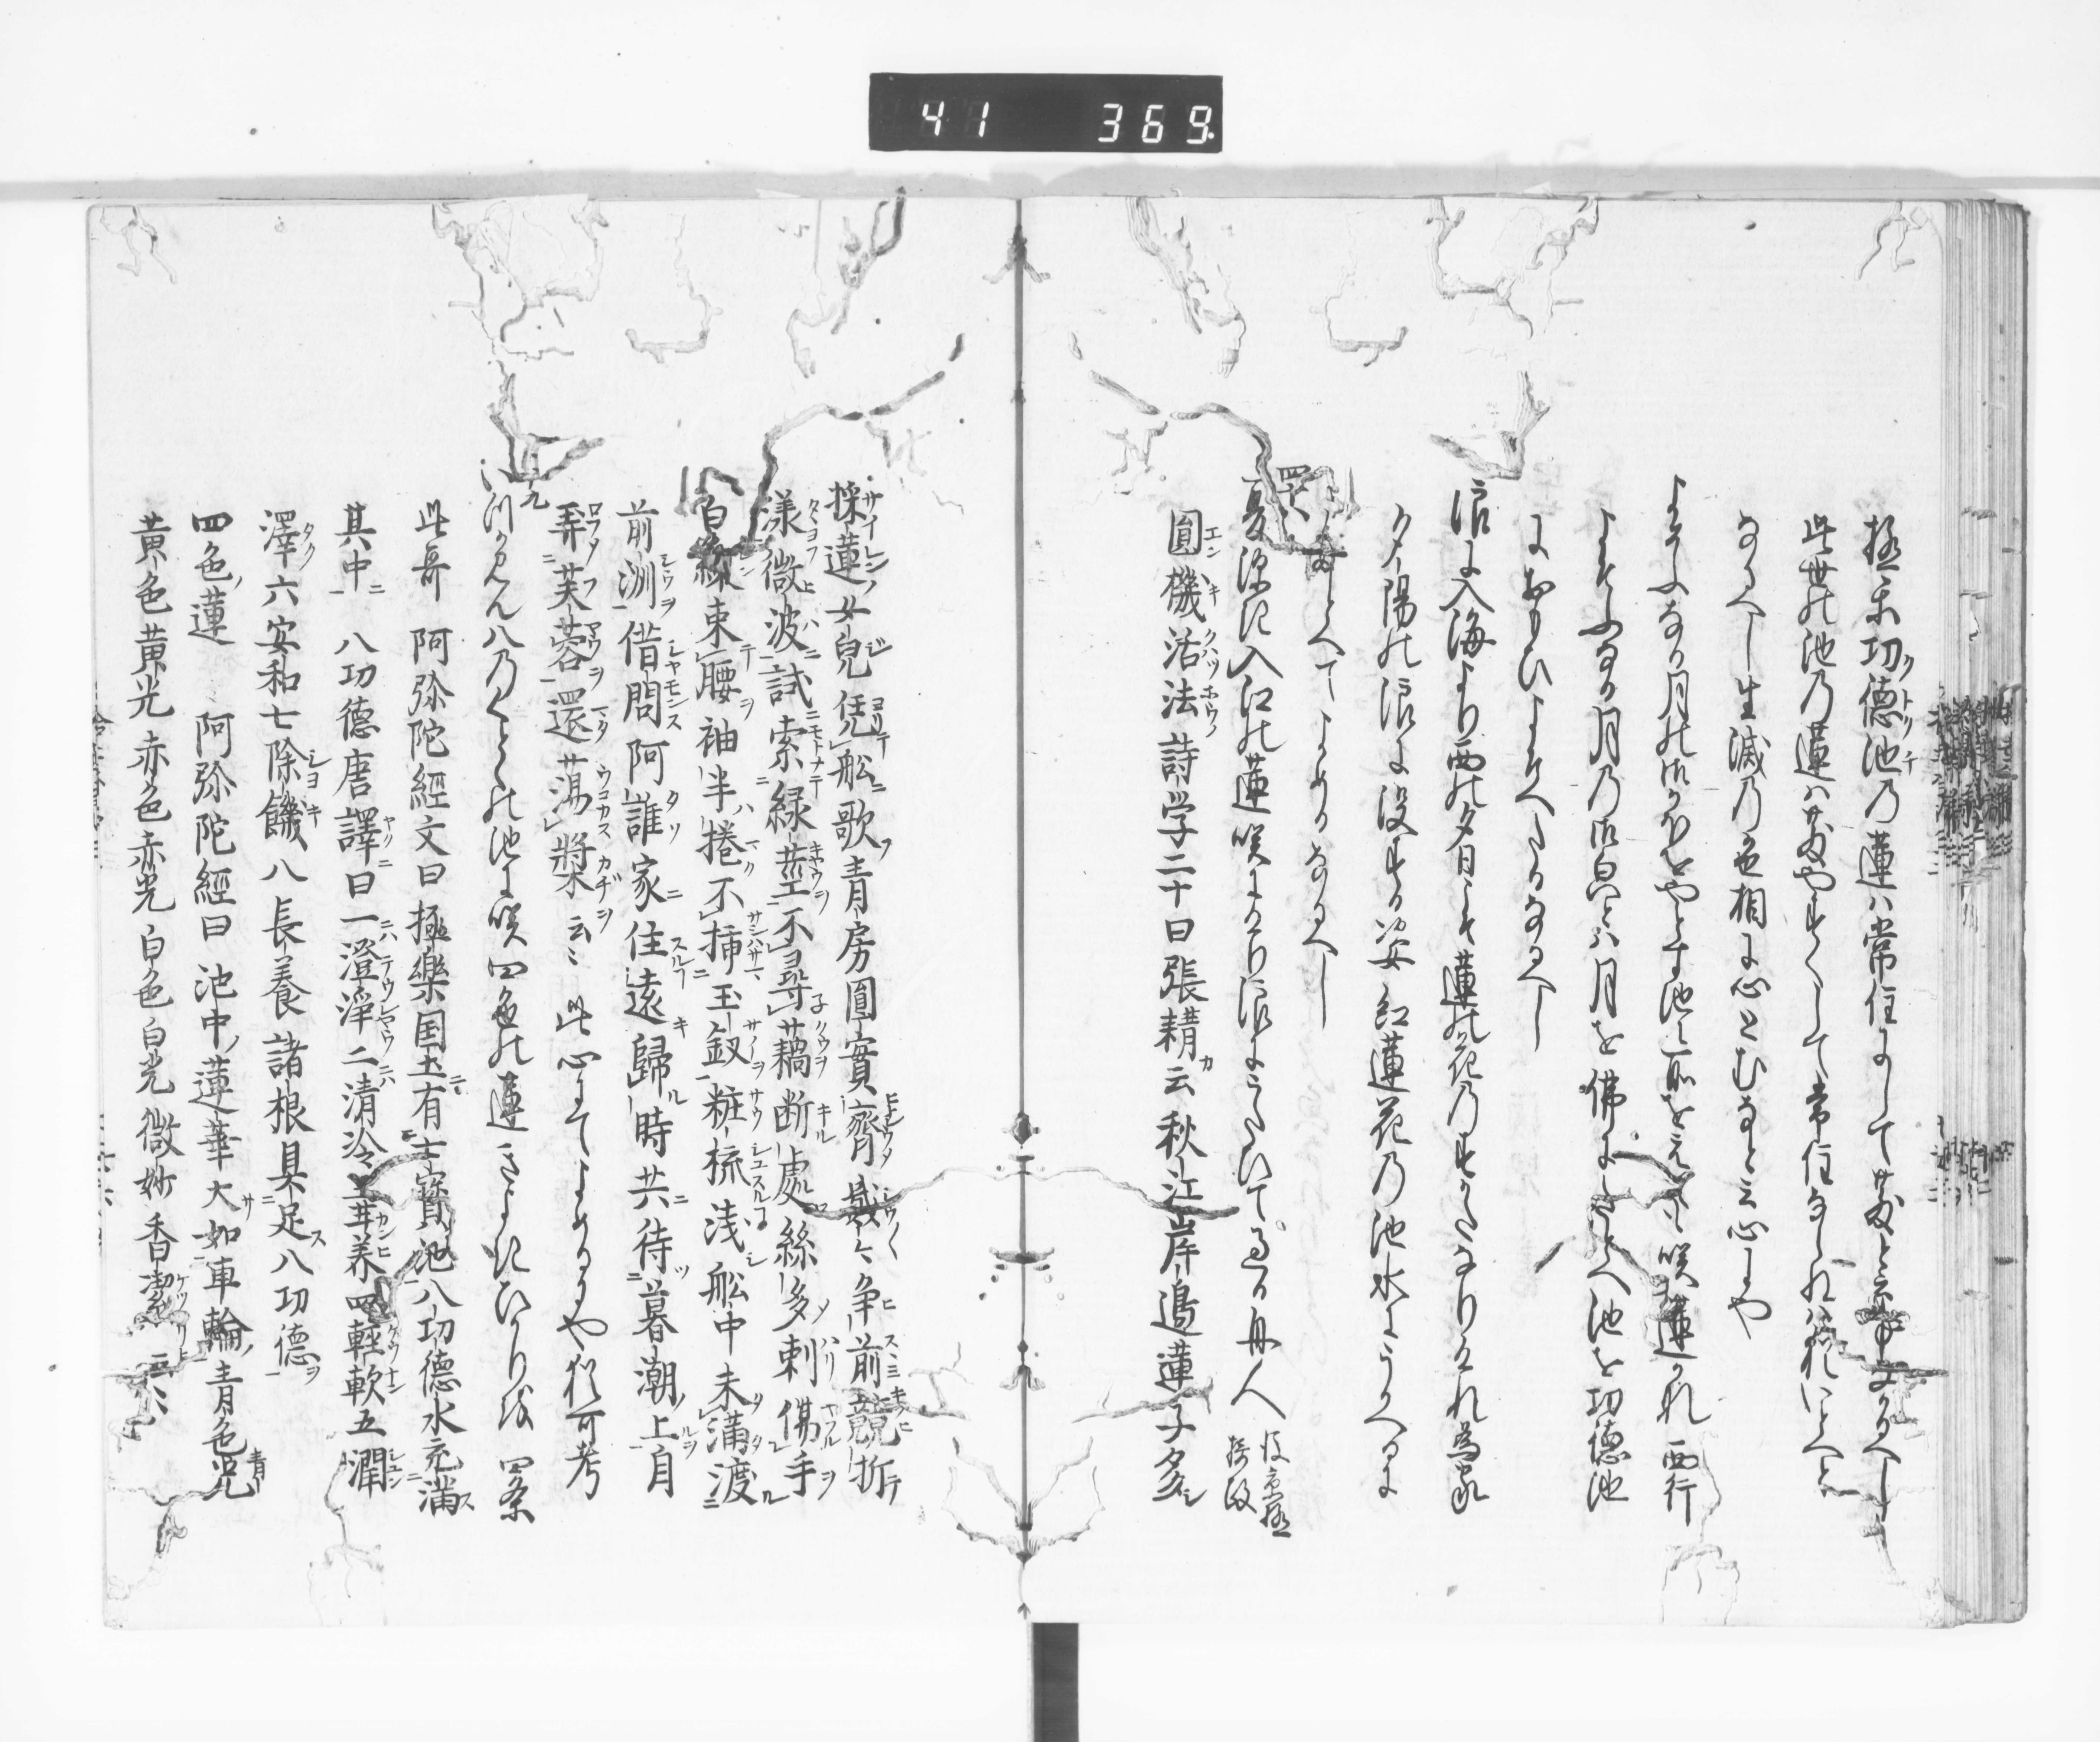 41 369
極楽功徳池乃蓮ハ常住にして
此世の池乃蓮ハ
なるへし生滅乃色相に心とむなと云心にや
よそふなる月のみかほをやとす池に所をえても咲蓮かな 西行
よそふなる月乃御皃とハ月を佛にたとへ池を功徳池
におもひよそへたるなるへし
浪に入海より西の夕日こそ蓮の花乃すかたなりけれ 為家
夕陽の浪に没する姿紅蓮花乃池水にうかへるに
たとへてよめるなるへし
夏深き入江の蓮咲にけり浪にうたひて過る舟人 後京極摂政
圓機活法詩学二十曰張耤云秋江岸邉蓮子多
採蓮女兒凭舩歌青房圓實齊戢々争前競折
漾微波試索緑莖不尋藕断處絲多刺傷手
白練束腰袖半捲不挿玉釵粧梳浅舩中未満渡
前洲借問阿誰家住遠歸時共待暮潮上自
弄芙蓉還蕩槳云々 此心にてよめるにや猶可考
いつかみん八乃くとくの池に咲四色の蓮きよきひかりを 四条
此哥 阿弥陀經文曰極樂国土有七寳池八功徳水充満
其中 八功徳唐譯曰一澄浄二清冷三甘美四軽軟五潤
澤六安和七除饑八長養諸根具足八功徳
四色蓮 阿弥陀經曰 池中蓮華大如車輪青色青光
黄色黄光赤色赤光白色白光微妙香潔 云々